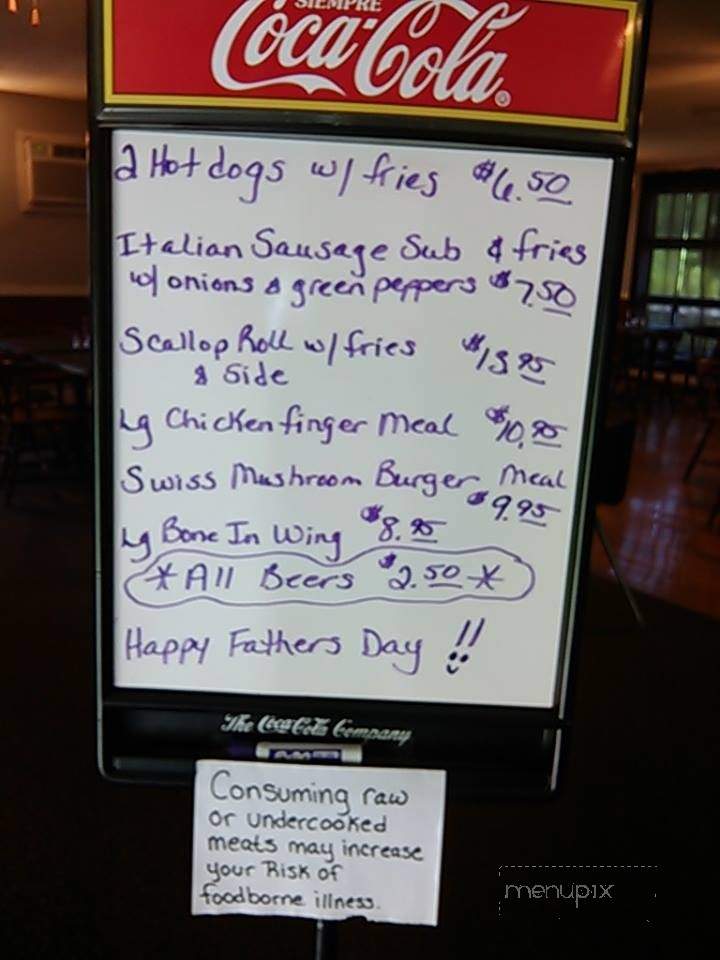 SIEMPRE
Coca-Cola®
2 Hot dogs w/ fries $6.50
Italian Sausage Sub & fries
w/ onions & green peppers $7.50
Scallop Roll w/ fries $13.95
& Side
Lg Chicken finger Meal $10.95
Swiss Mushroom Burger Meal
$9.95
Lg Bone In Wing $8.95
*All Beers $2.50*
Happy Fathers Day !!
The Coca-Cola Company
Consuming raw
or undercooked
meats may increase
your Risk of
foodborne illness.
menupix